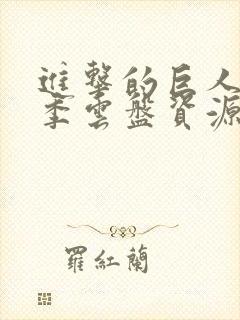 進擊的巨人
季雲盤資源
羅紅蘭